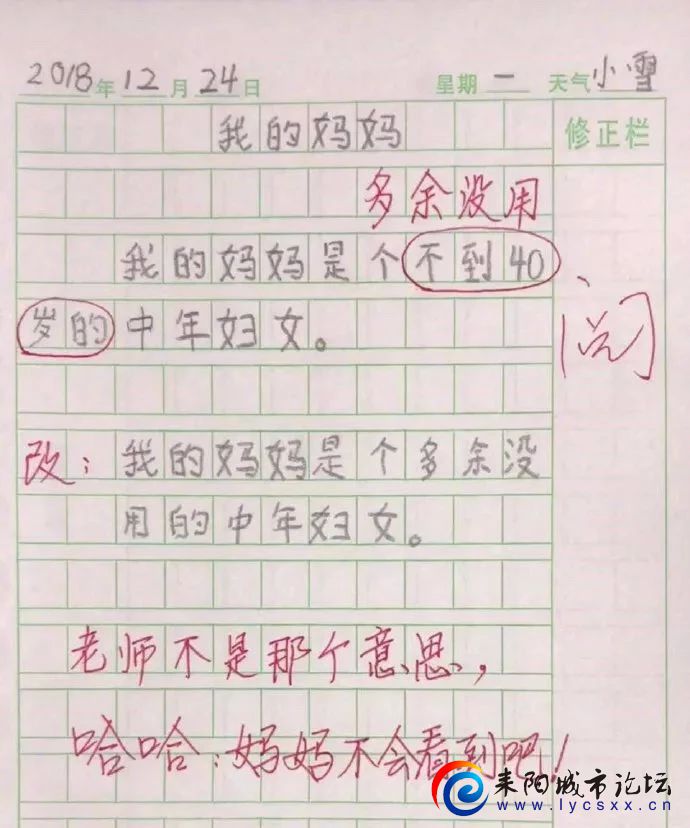 2018年12月24日 星期一 天气小雪
我的妈妈
修正栏
多余没用
我的妈妈是个不到40
岁的中年妇女。
阅
改：我的妈妈是个多余没
用的中年妇女。
老师不是那个意思，
哈哈：妈妈不会看到吧！
耒阳城市论坛
www.lycsxx.cn